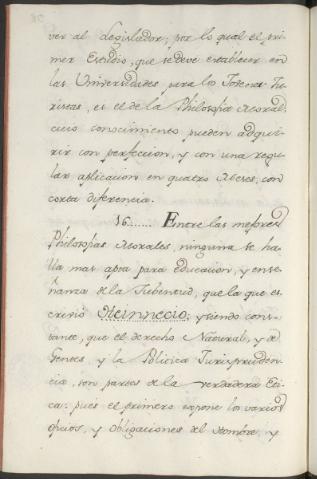 ver al Legislador; por lo qual el pri-
mer Estudio, que se deve establecer en
las Universidades para los Jovenes Ju-
ristas, es el de la Philosofia Moral,
cuio conocimiento pueden adqui-
rir con perfeccion, y con una regu-
lar aplicacion en quatro Meses, con
corta diferencia.
16...... Entre las mejores
Philosofias Morales, ninguna se ha-
lla mas apta para educacion, y ense-
ñanza de la Jubentud, que la que es-
crivió Heinnecio; y siendo cons-
tante, que el derecho Natural, y de
Gentes, y la Politica Jurispruden-
cia, son partes de la verdadera Eti-
ca: pues el primero expone los varios
oficios, y obligaciones del Hombre, y